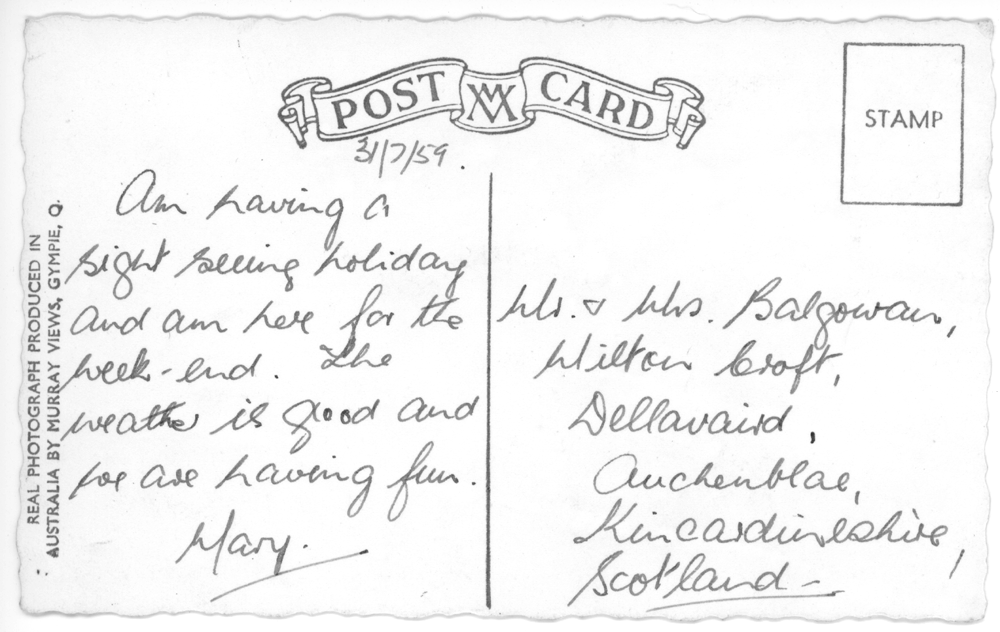 POST CARD
STAMP
31/7/59.
Am having a
sight seeing holiday
and am here for the
week-end. The
weather is good and
we are having fun.
Mary.
Mr. & Mrs. Balgowan,
Milton Croft,
Dellavaird,
Auchenblae,
Kincardineshire,
Scotland
REAL PHOTOGRAPH PRODUCED IN
AUSTRALIA BY MURRAY VIEWS, GYMPIE, Q.